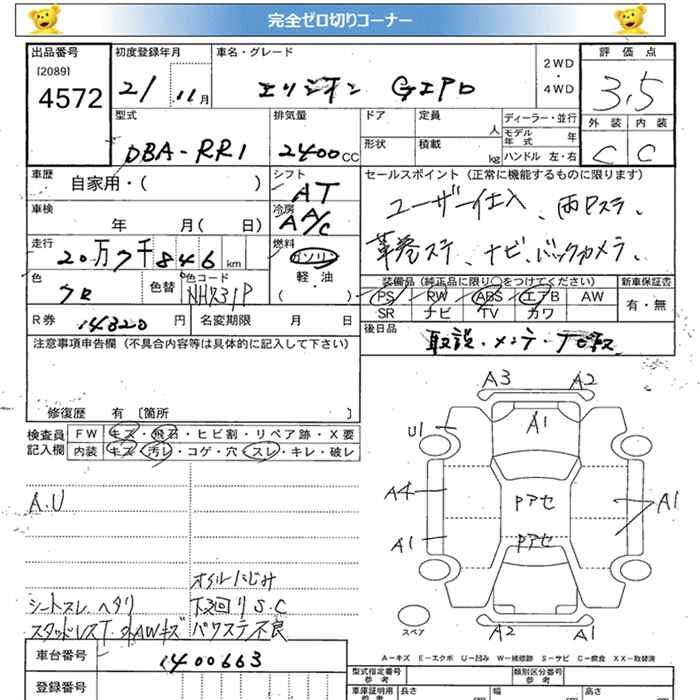 完全ゼロ切りコーナー
出品番号 初度登録年月 車名・グレード 評価点
[2089] 2WD
4572 21 .11月 エリシオン G エアロ ・ 3,5
4WD
型式 排気量 ドア 定員 ディーラー・並行 外装 内装
人 モデル年式 年
DBA-RR1 2400CC 形状 積載 kg ハンドル 左・右 C C
車歴 自家用・( ) シフト AT セールスポイント(正常に機能するものに限ります)
車検 年 月( 日) 冷房 AA/C ユーザー仕入、両Pスラ、
走行 20万7千846km 燃料 ガソリン 革巻ステ、ナビ、バックカメラ、
軽・油
( )
色 クロ 色替 色コード NH731P 装備品(純正品に限り○をつけてください) 新車保証書
PS RW ABS エアB AW 有・無
SR ナビ TV カワ
R券 14320円 名変期限 月 日 後日品 取説・メンテ・
注意事項申告欄(不具合内容等は具体的に記入して下さい)
修復歴 有[箇所 ]
検査員 FW キズ・飛石・ヒビ割・リペア跡・X要
記入欄 内装 キズ・汚レ・コゲ・穴・スレ・キレ・破レ
A3 A2
U1 A1
A.U A4 Pアセ A1
A1 Pアセ
オイルにじみ
シートスレ、ヘタリ 下回りS.C
スタッドレスT.外AWキズ パワステ不良
スペア A2 A1
A-キズ E-エクボ U-凹み W-補修跡 S-サビ C-腐食 XX-取替済
車台番号 1400663 型式指定番号 参考 類別区分番号 参考
登録番号 車庫証明用 参考 長さ cm 幅 cm 高さ